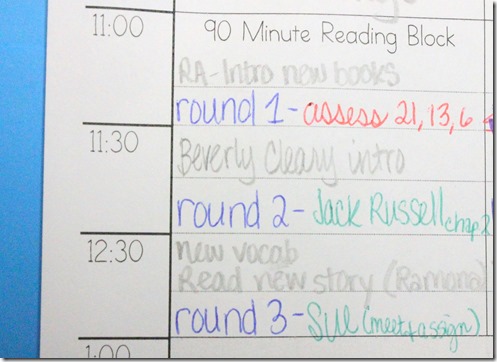 11:00
90 Minute Reading Block
RA-Intro new books
round 1- assess 21, 13, 6
11:30
Beverly Cleary intro
round 2- Jack Russell chap 2
12:30
new vocab
Read new story (Ramona)
round 3-
(meet & assign)
1:00